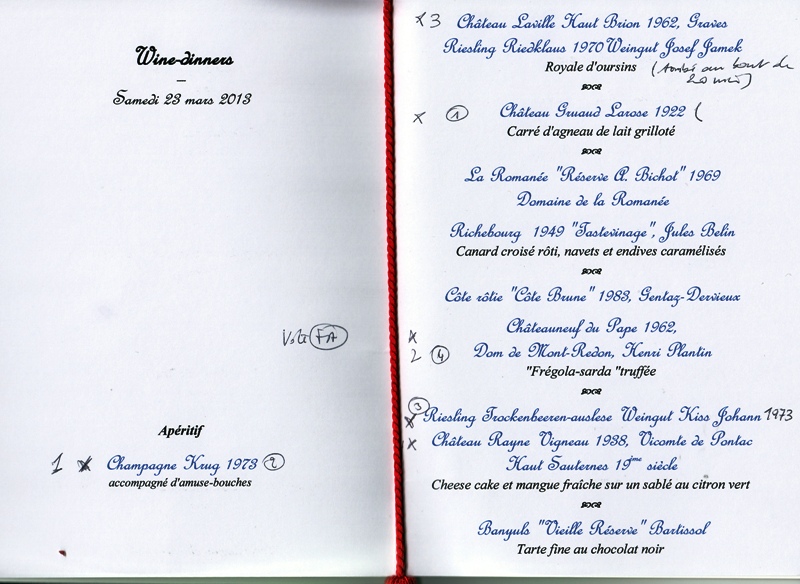 Wine-dinners
–
Samedi 23 mars 2013
Vote FA
Apéritif
1 x Champagne Krug 1973 2
accompagné d'amuse-bouches
x 3 Château Laville Haut Brion 1962, Graves
Riesling Riedklaus 1970 Weingut Josef Jamek
Royale d'oursins (tombé au bout de
20 min)
x 1 Château Gruaud Larose 1922 (
Carré d'agneau de lait grilloté
La Romanée "Réserve A. Bichot" 1969
Domaine de la Romanée
Richebourg 1949 "Tastevinage", Jules Belin
Canard croisé rôti, navets et endives caramélisés
Côte rôtie "Côte Brune" 1983, Gentaz-Dervieux
x Châteauneuf du Pape 1962,
2 4 Dom de Mont-Redon, Henri Plantin
"Frégola-sarda "truffée
3
x Riesling Trockenbeeren-auslese Weingut Kiss Johann 1973
x Château Rayne Vigneau 1938, Vicomte de Pontac
Haut Sauternes 19ème siècle
Cheese cake et mangue fraîche sur un sablé au citron vert
Banyuls "Vieille Réserve" Bartissol
Tarte fine au chocolat noir